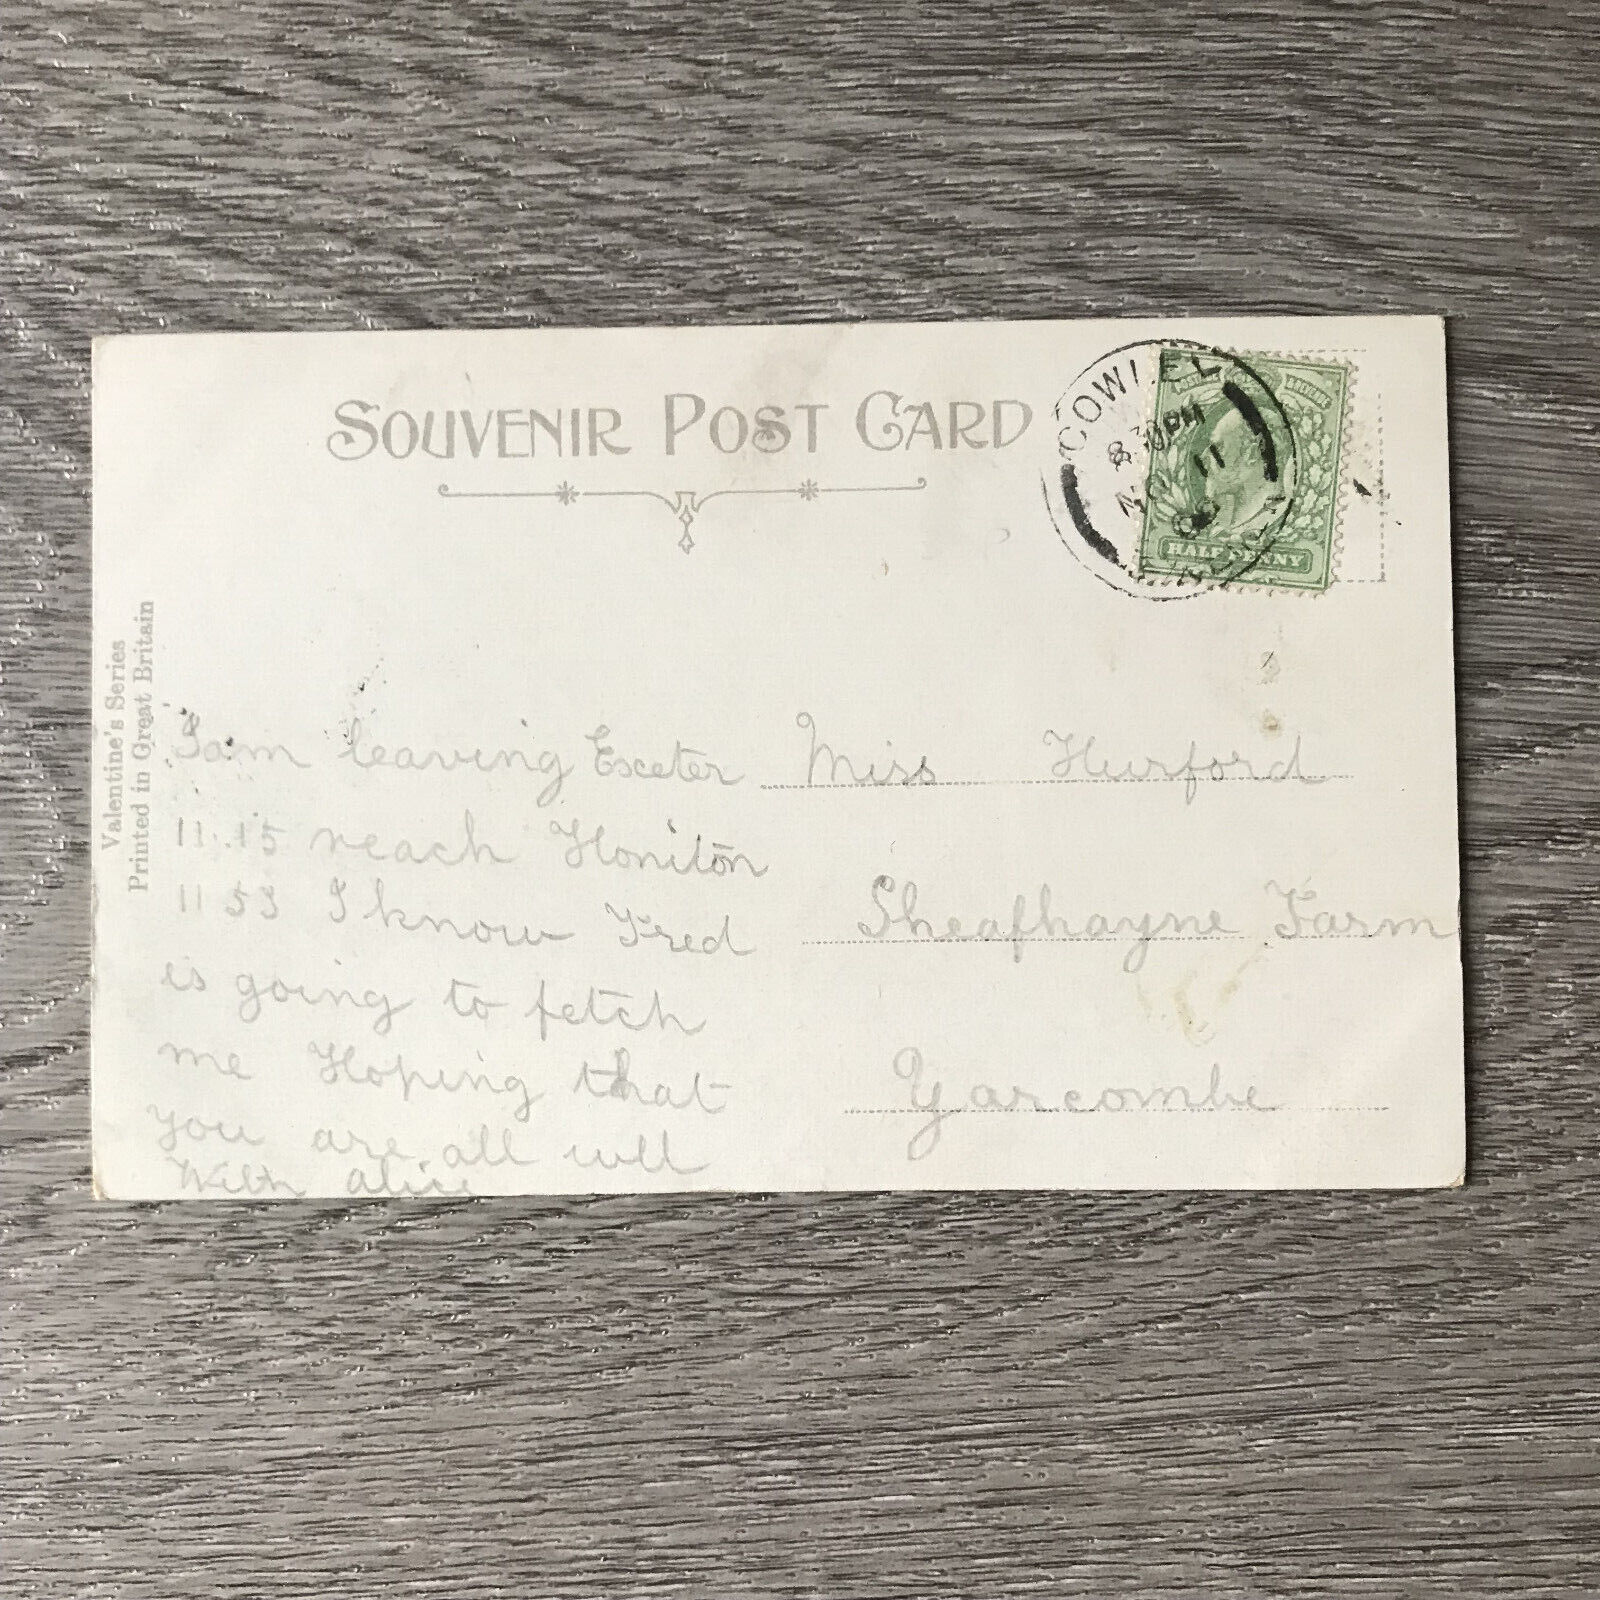 SOUVENIR POST CARD
COWLEY
8 30PM
NO 11
HALF PENNY
Valentine's Series
Printed in Great Britain
I am leaving Exeter
11.15 reach Honiton
11 53 I know Fred
is going to fetch
me Hoping that
you are all well
With alice
Miss Hurford
Sheafhayne Farm
Yarcombe